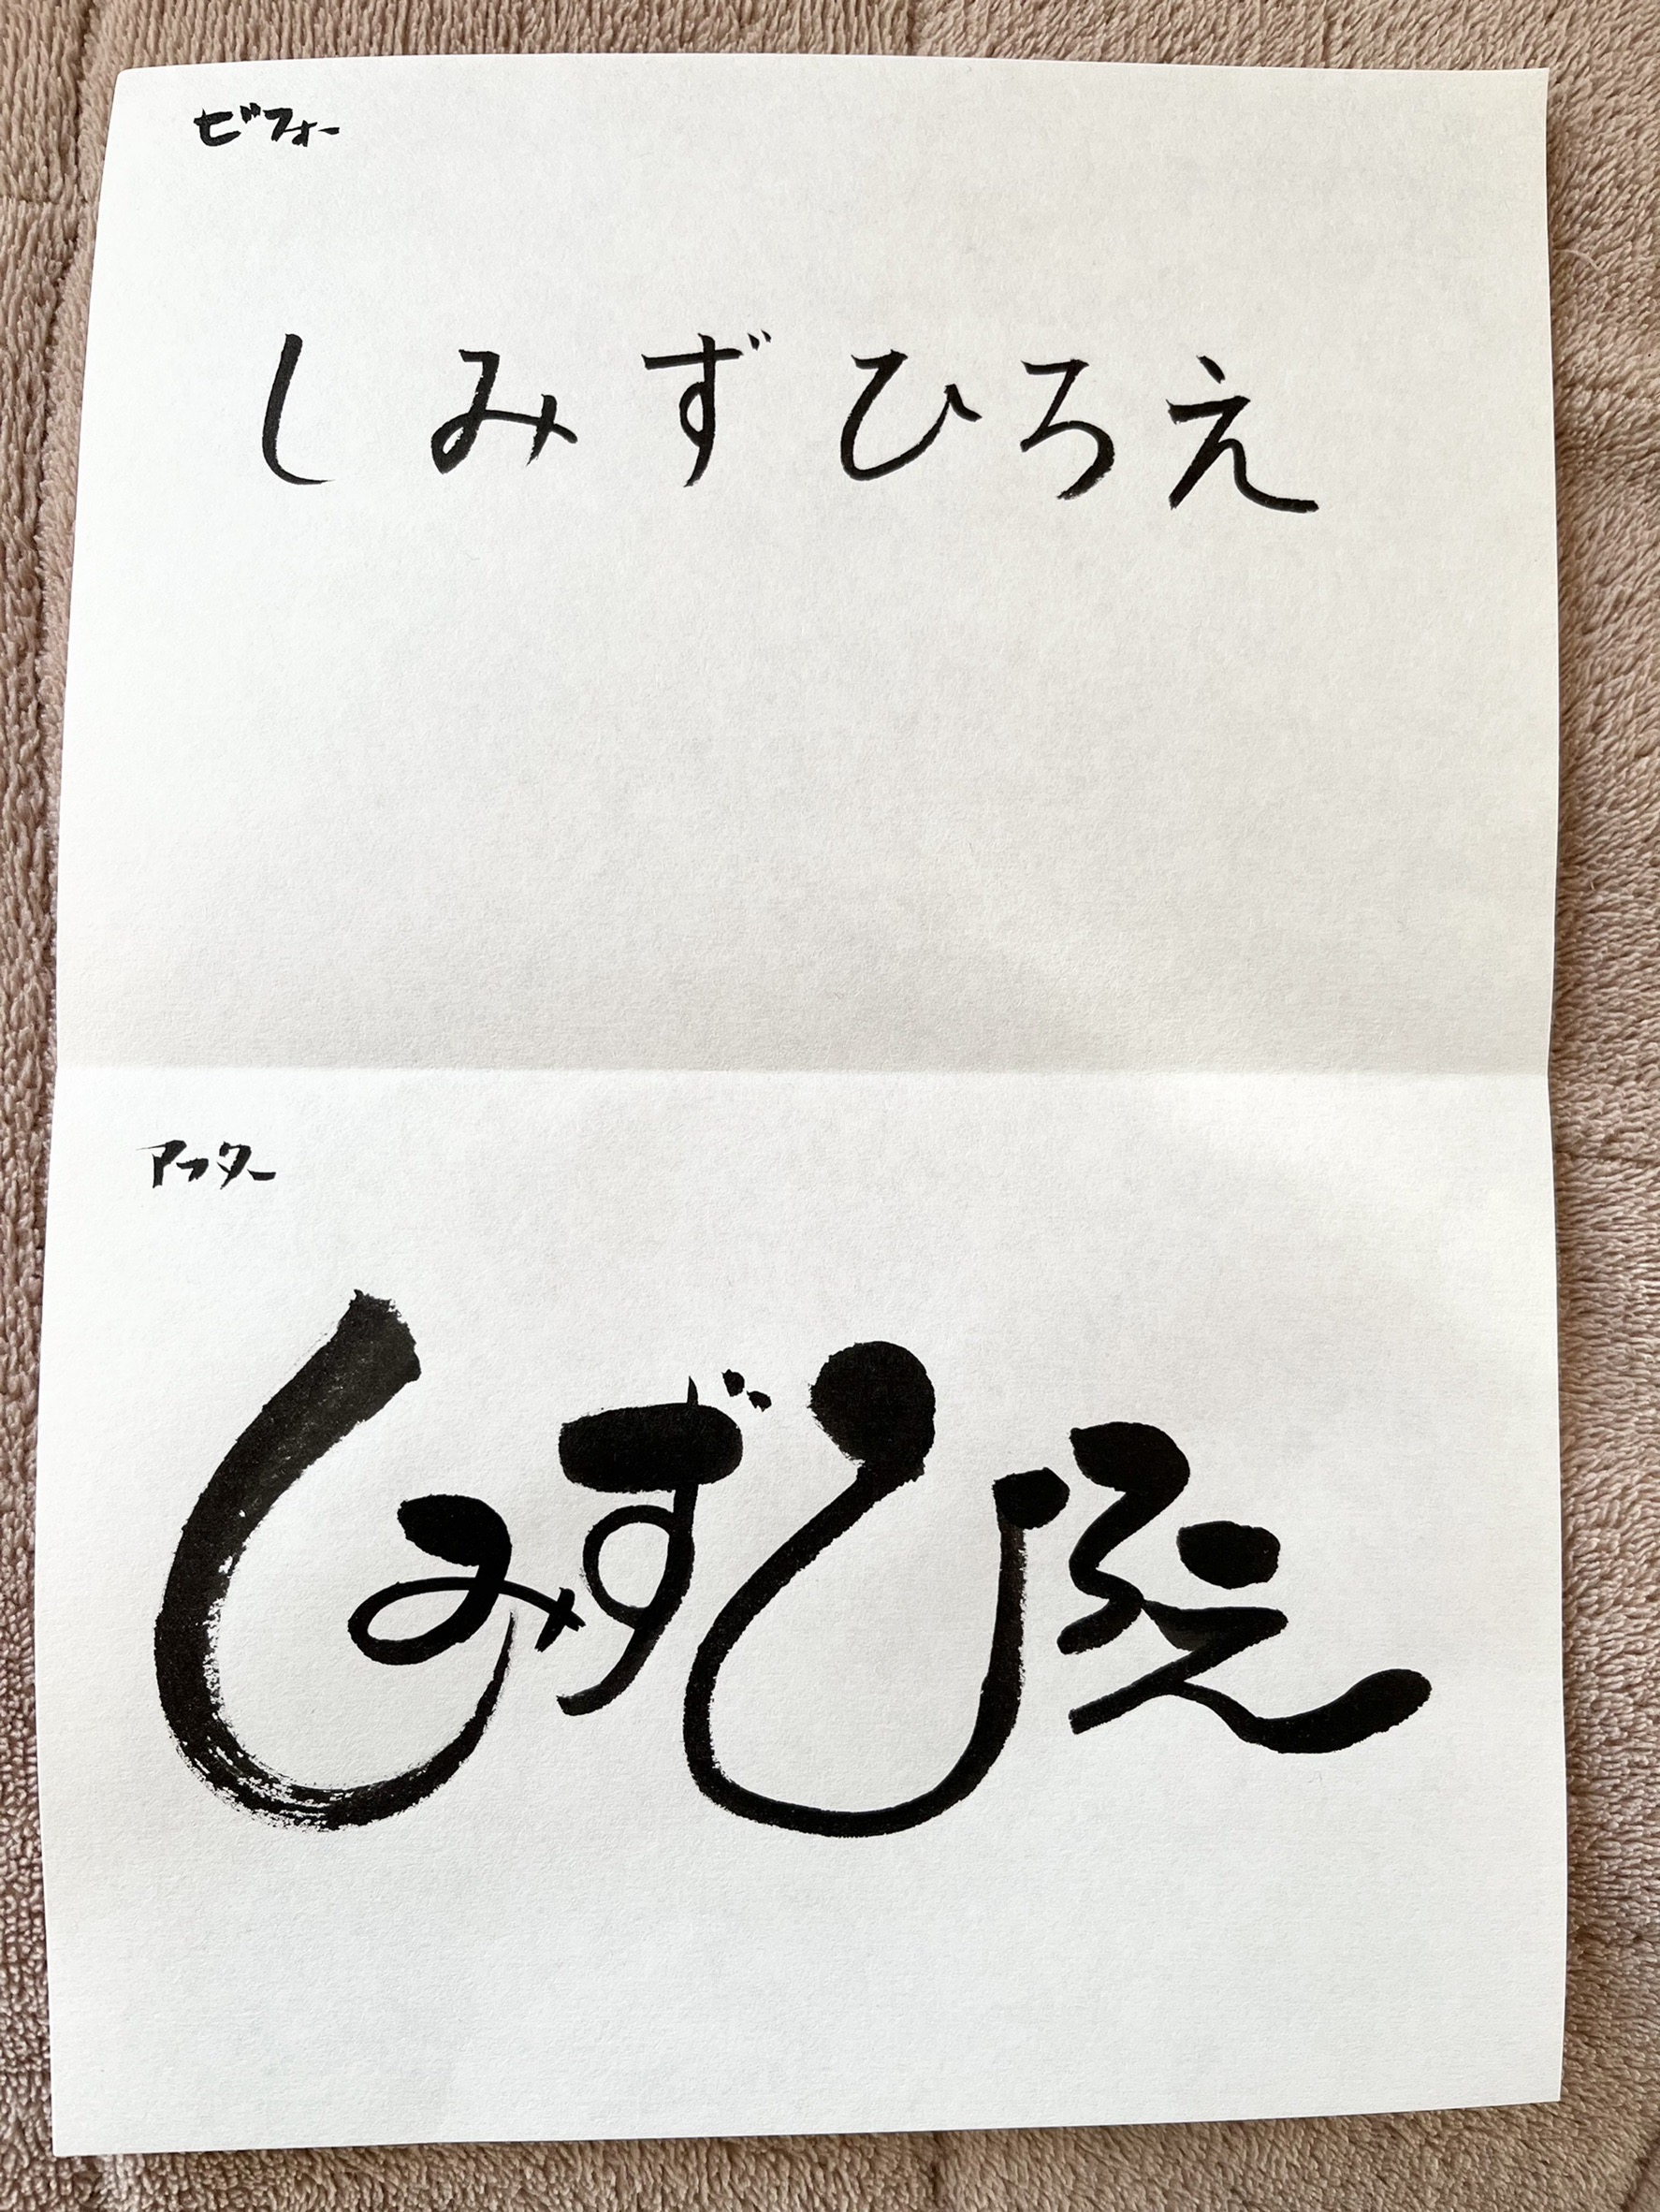 ビフォー
しみずひろえ
アフター
しみずひろえ